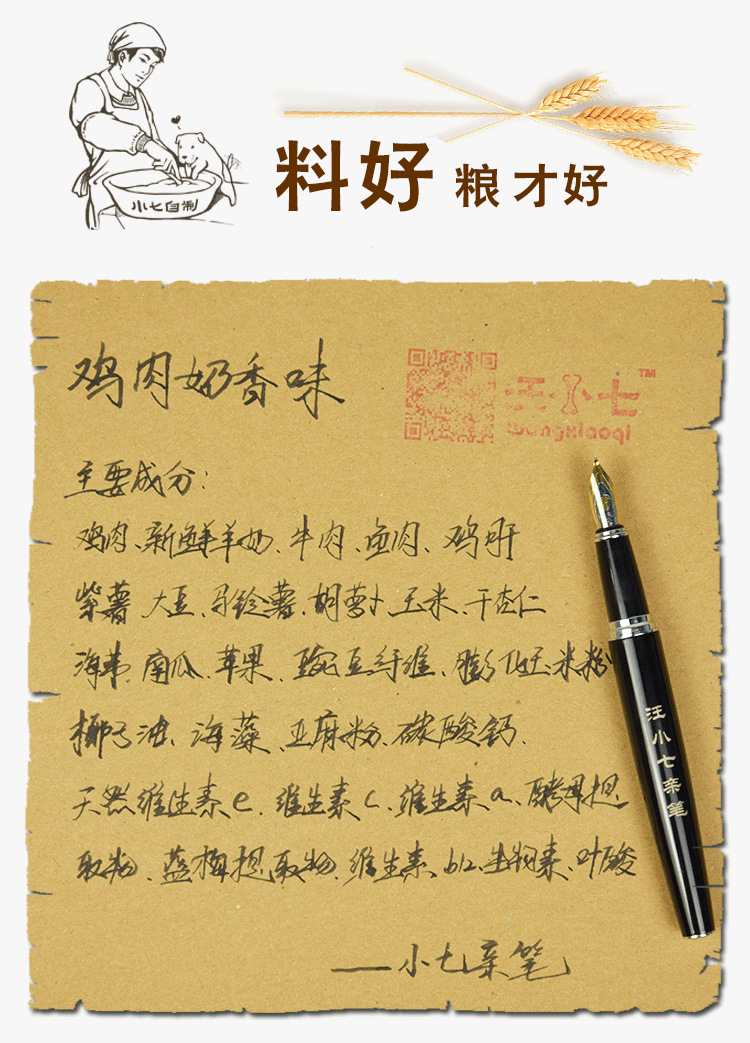 小七自制
料好 粮才好
鸡肉奶香味
汪小七™
Wangxiaoqi
主要成分:
鸡肉、新鲜羊奶、牛肉、鱼肉、鸡肝
紫薯、大豆、马铃薯、胡萝卜、玉米、干杏仁
海带、南瓜、苹果、豌豆纤维、膨化玉米粉
椰子油、海藻、亚麻粉、碳酸钙、
天然维生素e、维生素c、维生素a、酵母提
取物、蓝莓提取物、维生素b12、生物素、叶酸
——小七亲笔
汪小七亲笔